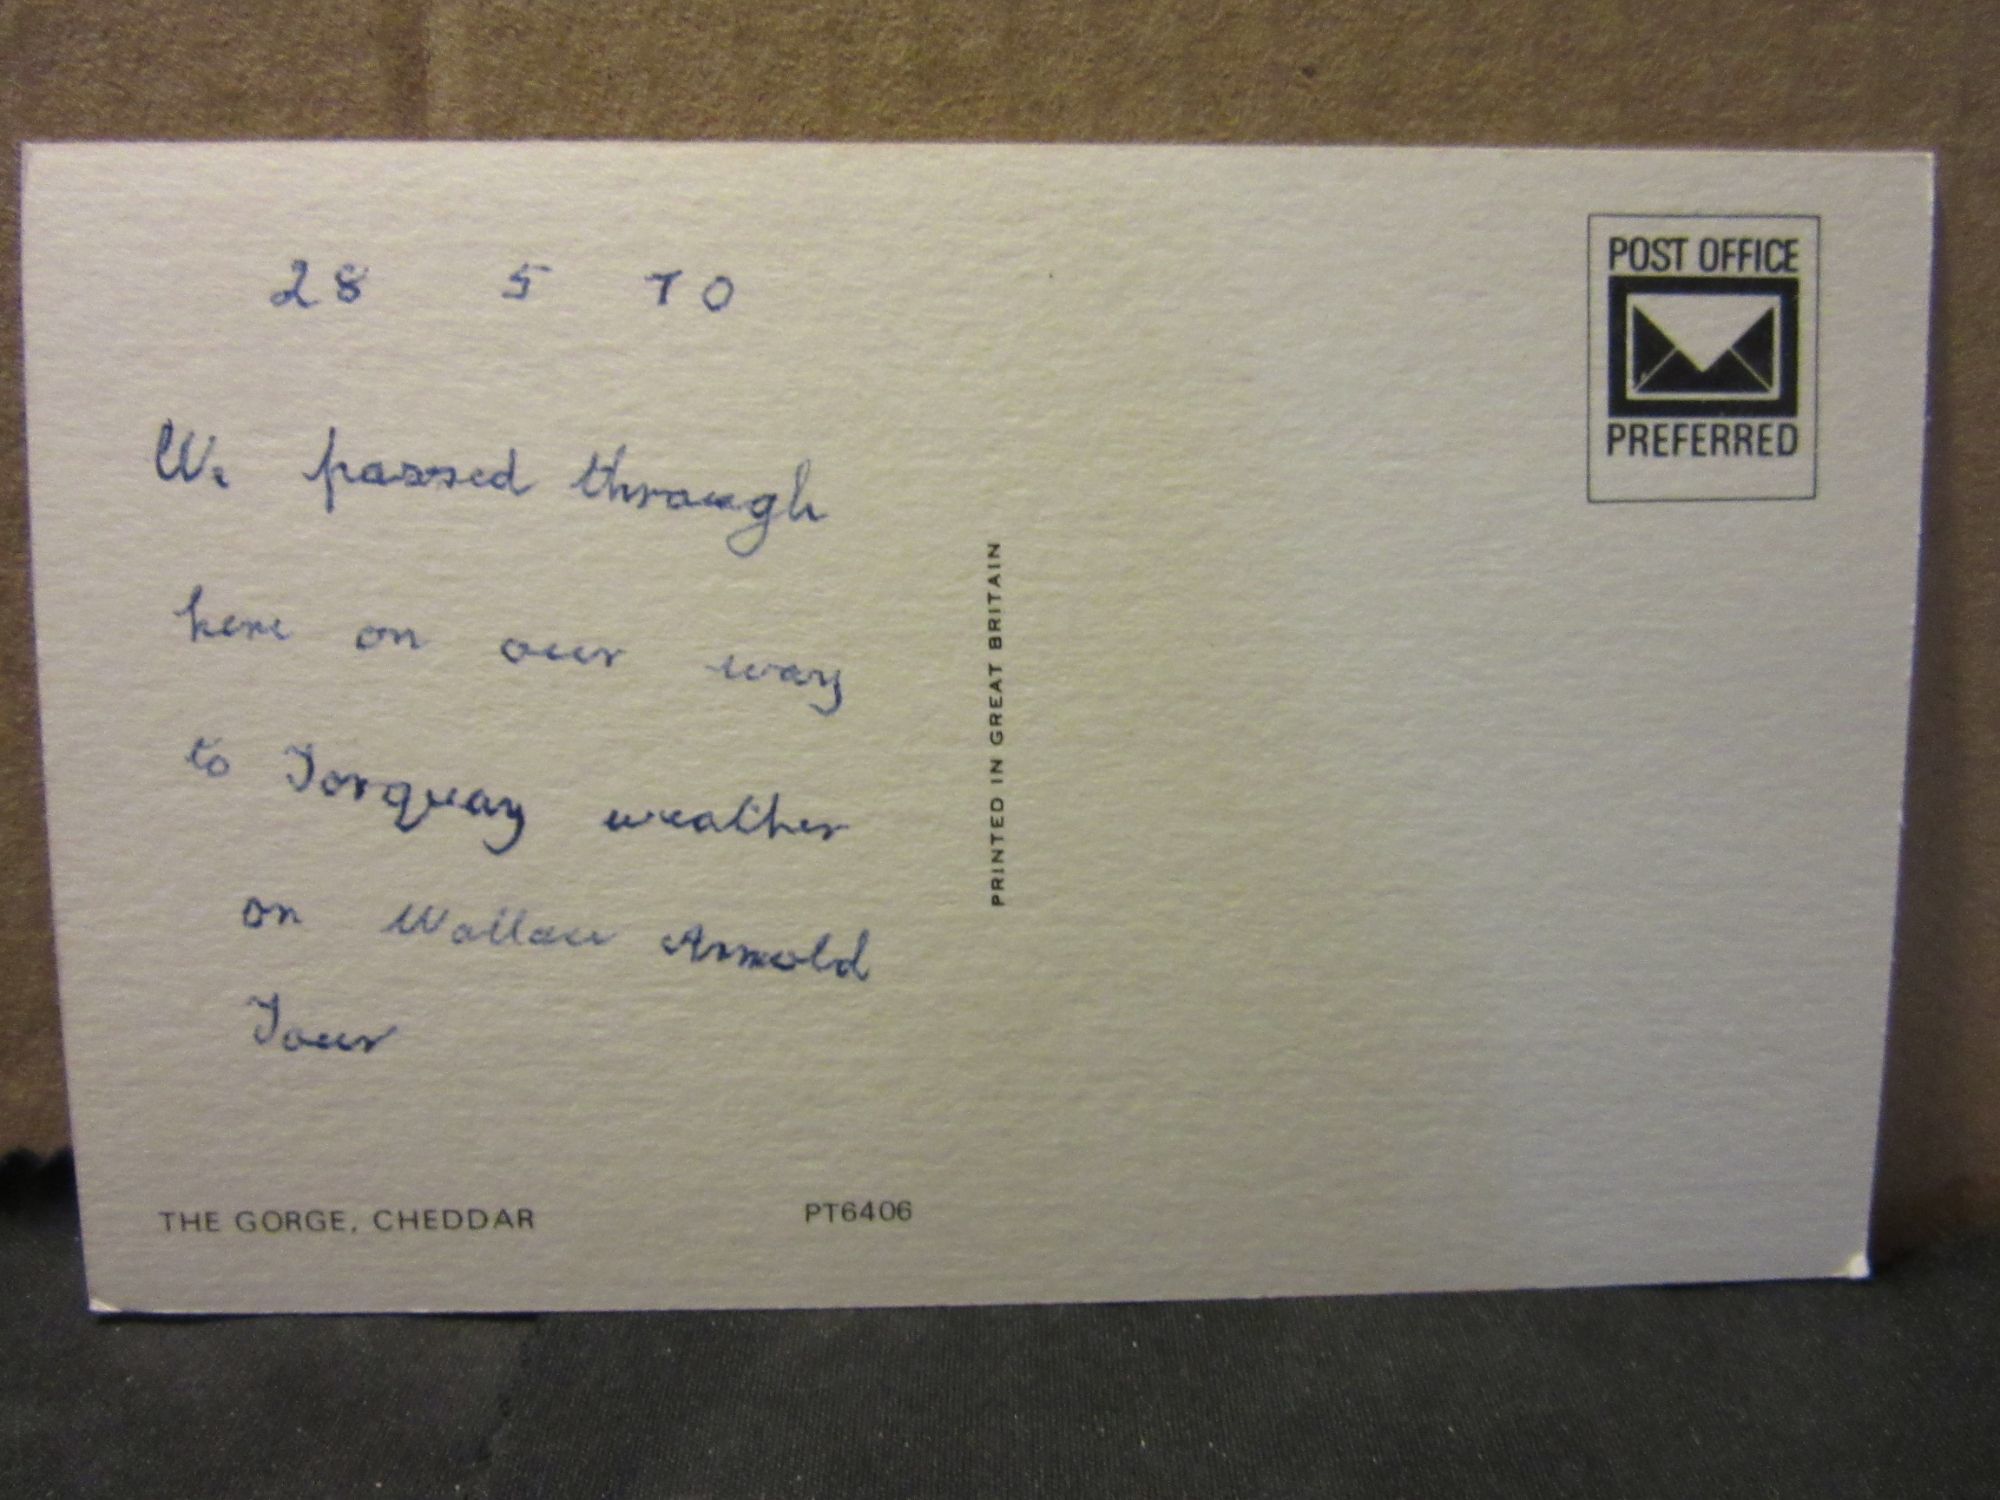 28 5 70
We passed through
here on our way
to Torquay weather
on Wallace Arnold
Tour
THE GORGE, CHEDDAR
PT6406
PRINTED IN GREAT BRITAIN
POST OFFICE
PREFERRED